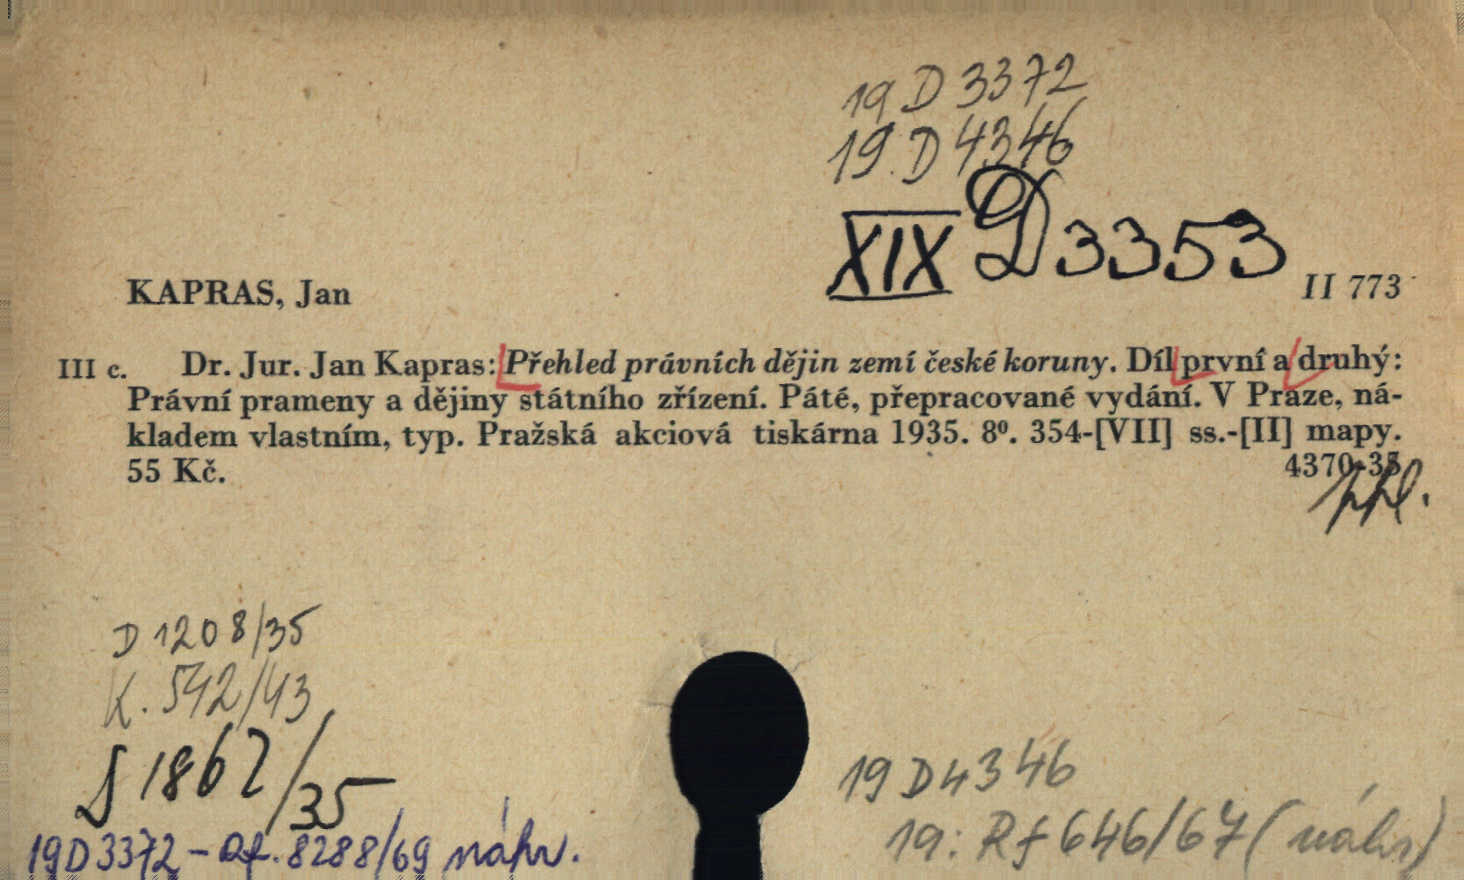 19 D 3372
19 D 4346
XIX D 3353
II 773
KAPRAS, Jan
III c. Dr. Jur. Jan Kapras: Přehled právních dějin zemí české koruny. Díl první a druhý:
Právní prameny a dějiny státního zřízení. Páté, přepracované vydání. V Praze, ná-
kladem vlastním, typ. Pražská akciová tiskárna 1935. 8⁰. 354-[VII] ss.-[II] mapy.
55 Kč. 4370-35
D 1208/35
K. 542/43
1862/35
19 D 4346
19D3372 - Rf. 8288/69 náhr.
19: Rf 646/67 (náhr)